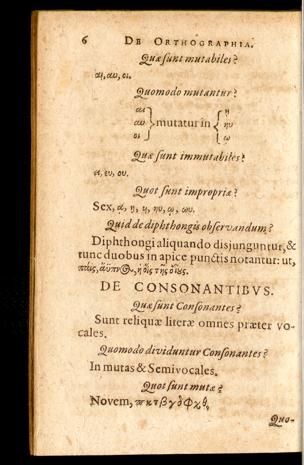 6 DE ORTHOGRAPHIA.
Quæ sunt mutabiles?
αι, αυ, οι.
Quomodo mutantur?
αι } { ῃ
αυ } mutatur in { ηυ
οι } { ῳ
Quæ sunt immutabiles?
ει, ευ, ου.
Quot sunt impropriæ?
Sex, ᾳ, ῃ, υι, ηυ, ῳ, ωυ.
Quid de diphthongis observandum?
Diphthongi aliquando disjunguntur, &
tunc duobus in apice punctis notantur: ut,
πάϊς, ἄϋπνος, ἡ ὄϊς τῆς ὄϊος.
DE CONSONANTIBVS.
Quæ sunt Consonantes?
Sunt reliquæ literæ omnes præter vo-
cales.
Quomodo dividuntur Consonantes?
In mutas & Semivocales.
Quot sunt mutæ?
Novem, πκτβγδφχθ.
Quo-